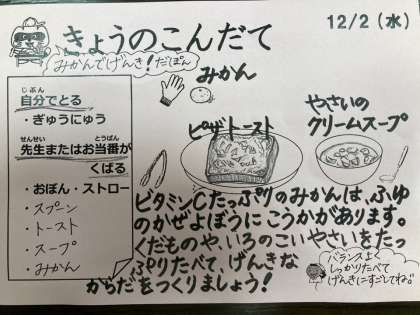 きょうのこんだて
12/2（水）
みかんでげんき！だぽん
自分でとる
じぶん
・ぎゅうにゅう
先生またはお当番が
せんせい とうばん
くばる
・おぼん・ストロー
・スプーン
・トースト
・スープ
・みかん
みかん
ピザトースト
やさいの
クリームスープ
ビタミンCたっぷりのみかんは、ふゆ
のかぜよぼうにこうかがあります。
くだものや、いろのこいやさいをたっ
ぷりたべて、げんきな
からだをつくりましょう！
バランスよく
しっかりたべて
げんきにすごしてね。